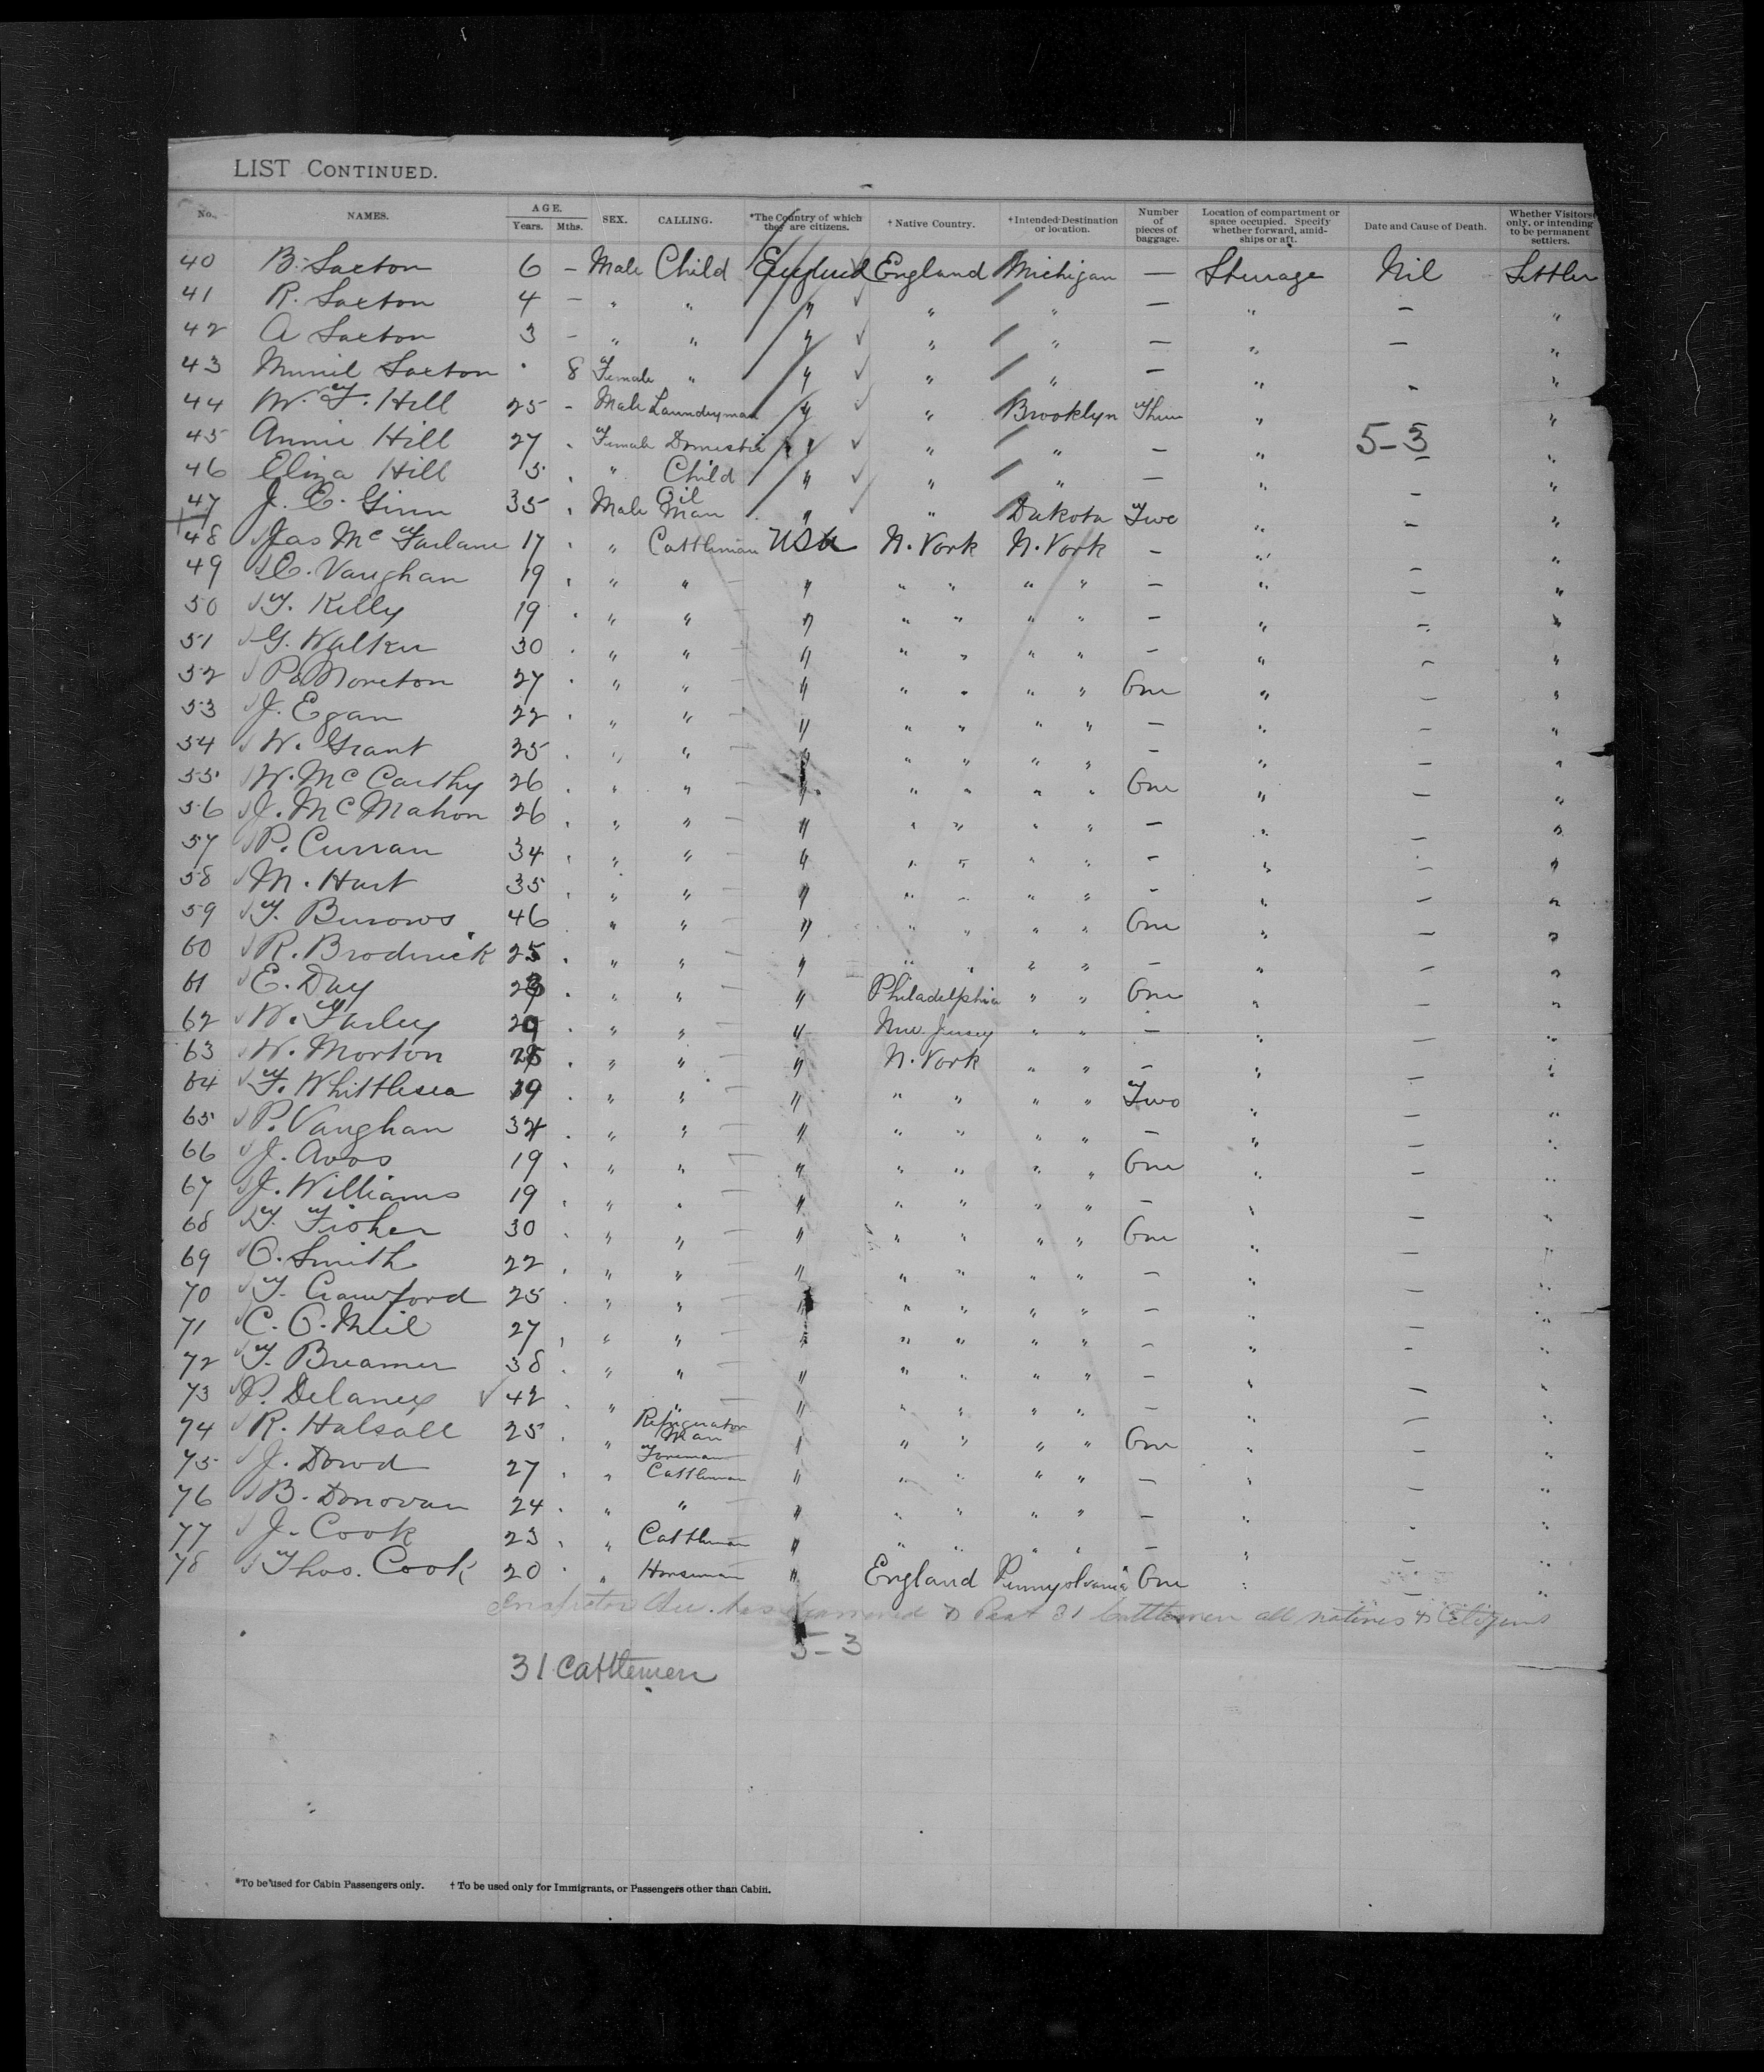 LIST CONTINUED.
No. NAMES. AGE. Years. Mths. SEX. CALLING. *The Country of which they are citizens. † Native Country. † Intended Destination or location. Number of pieces of baggage. Location of compartment or space occupied. Specify whether forward, amidships or aft. Date and Cause of Death. Whether Visitors only, or intending to be permanent settlers.
40 B. Saxton 6 – Male Child England England Michigan — Steerage Nil Settler
41 R. Saxton 4 – " " " " " — " – "
42 A Saxton 3 – " " " " " — " — "
43 Saxton 8 Female " " " " – " - "
44 W. F. Hill 25 – Male Laundryman " " Brooklyn Three " "
45 Annie Hill 27 . Female Domestic " " " – " 5-3 – "
46 Eliza Hill 5 . " Child " " " — " – "
47 J. E. Ginn 35 . Male Oil Man " " Dakota Two " – "
48 Jas McFarlane 17 . " Cattleman USA N. York N. York – " – "
49 C. Vaughan 19 . " " " " " " " – " – "
50 T. Kelly 19 . " " " " " " " – " – "
51 G. Walker 30 . " " " " " " " – " – "
52 P. Moreton 27 . " " " " " " " One " – "
53 J. Egan 22 . " " " " " " " – " – "
54 W. Grant 25 . " " " " " " " – " – "
55 W. McCarthy 26 . " " " " " " " One " – "
56 J. McMahon 26 . " " " " " " " – " – "
57 P. Curran 34 . " " " " " " " – " – "
58 M. Hart 35 . " " " " " " " – " – "
59 T. Burows 46 . " " " " " " " One " – "
60 R. Broderick 25 . " " " " " " " – " – "
61 E. Day . " " " Philadelphia " " One " – "
62 W. Farley 29 . " " " New Jersey " " – " – "
63 W. Morton . " " " N. York " " – " – "
64 F. Whittlesea 39 . " " " " " " " Two " – "
65 P. Vaughan 34 . " " " " " " " – " – "
66 J. Avos 19 . " " " " " " " One " – "
67 J. Williams 19 . " " " " " " " – " – "
68 T. Fisher 30 . " " " " " " " One " – "
69 O. Smith 22 . " " " " " " " – " – "
70 T. Crawford 25 . " " " " " " " – " – "
71 C. O. Neil 27 . " " " " " " " – " – "
72 T. Breamer 38 . " " " " " " " – " – "
73 P. Delaney 42 . " " " " " " " – " – "
74 R. Halsall 25 . " Refrigerator Man " " " " " One " – "
75 J. Dowd 27 . " Foreman Cattleman " " " " " – " – "
76 B. Donovan 24 . " " " " " " " – " – "
77 J. Cook 23 . " Cattleman " " " " " – " – "
78 Thos. Cook 20 . " Horseman " England Pennsylvania One " – "
Inspector has examined & Past 31 Cattlemen all natives & Citizens
5-3
31 Cattlemen
*To be used for Cabin Passengers only. † To be used only for Immigrants, or Passengers other than Cabin.